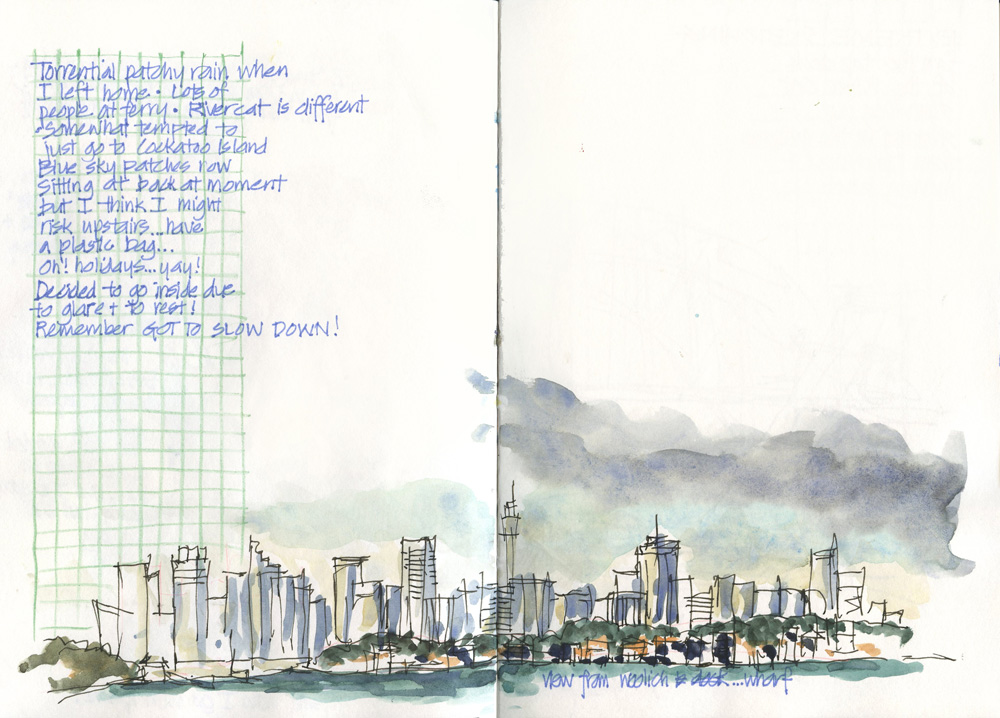 Torrential patchy rain when
I left home • Lots of
people at ferry • Rivercat is different
• Somewhat tempted to
just go to Cockatoo Island
Blue sky patches now
Sitting at back at moment
but I think I might
risk upstairs...have
a plastic bag...
Oh! holidays...yay!
Decided to go inside due
to glare + to rest!
Remember GOT TO SLOW DOWN!
view from woolich ... wharf